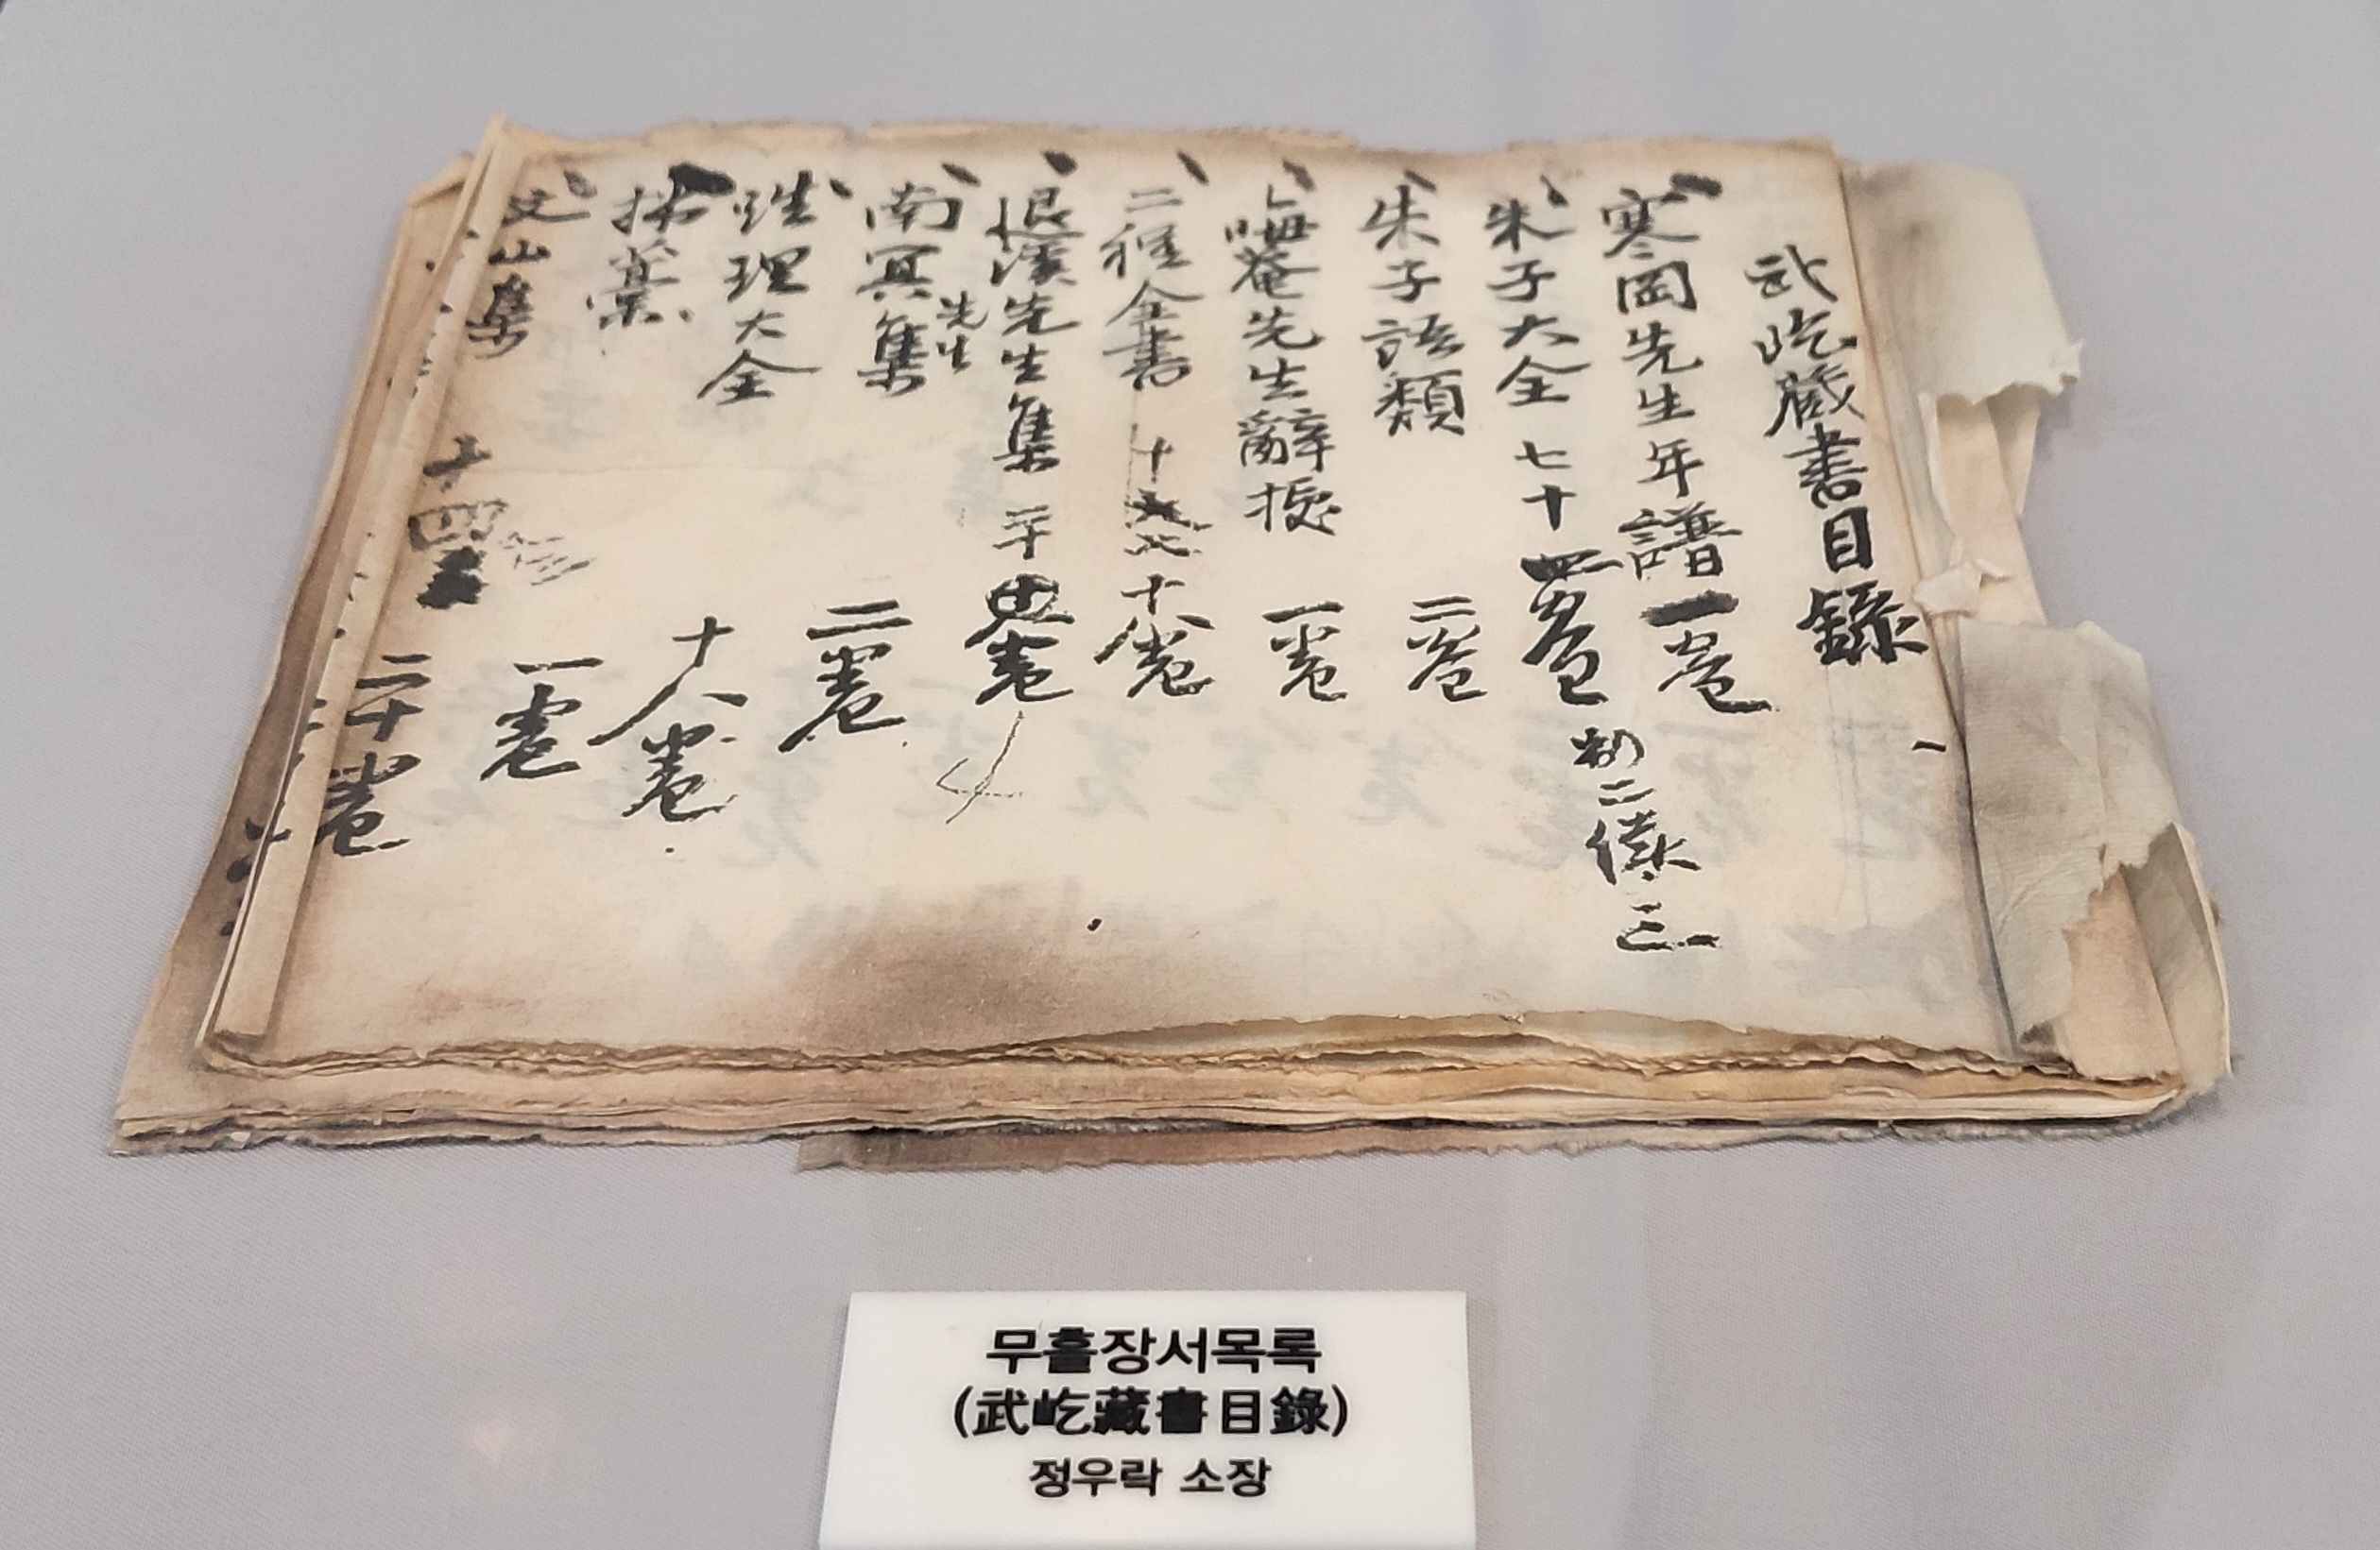 武屹藏書目錄
寒岡先生年譜 一卷
朱子大全 七十四卷 初二傔三
朱子語類 二卷
晦菴先生辭 一卷
二程全書 十八卷
退溪先生集 二十 卷
南冥先生集 二卷
性理大全 十八卷
拂 一卷
文山集 二十卷
十四
무흘장서목록
(武屹藏書目錄)
정우락 소장